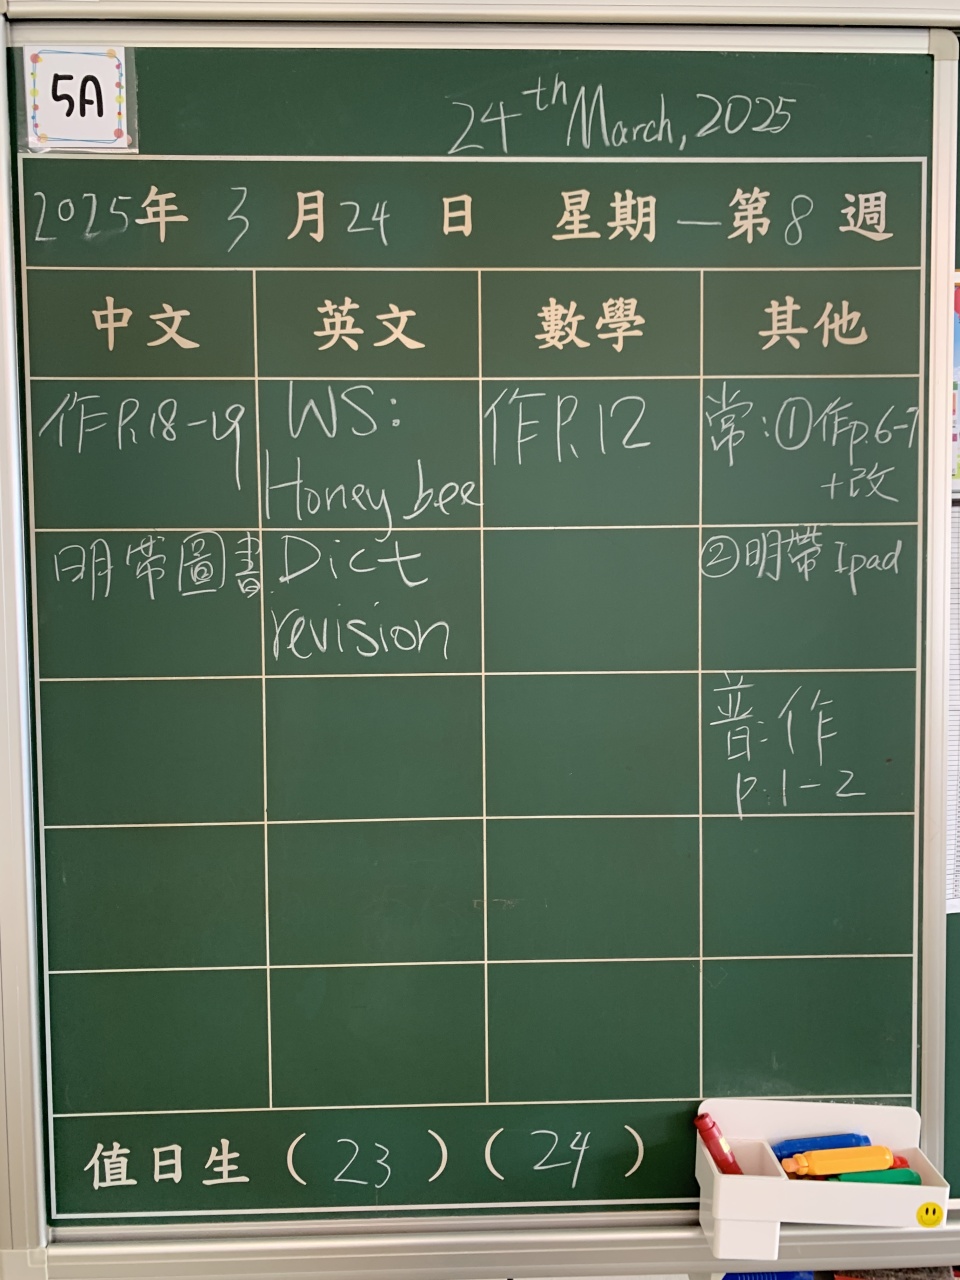 5A
24th March, 2025
2025年 3 月 24 日 星期 一 第 8 週
中文 英文 數學 其他
作P.18-19
WS:
Honey bee
作P.12
常:①作p.6-7
+改
明帶圖書
Dict
revision
②明帶Ipad
普:作
p.1-2
值日生 ( 23 ) ( 24 )